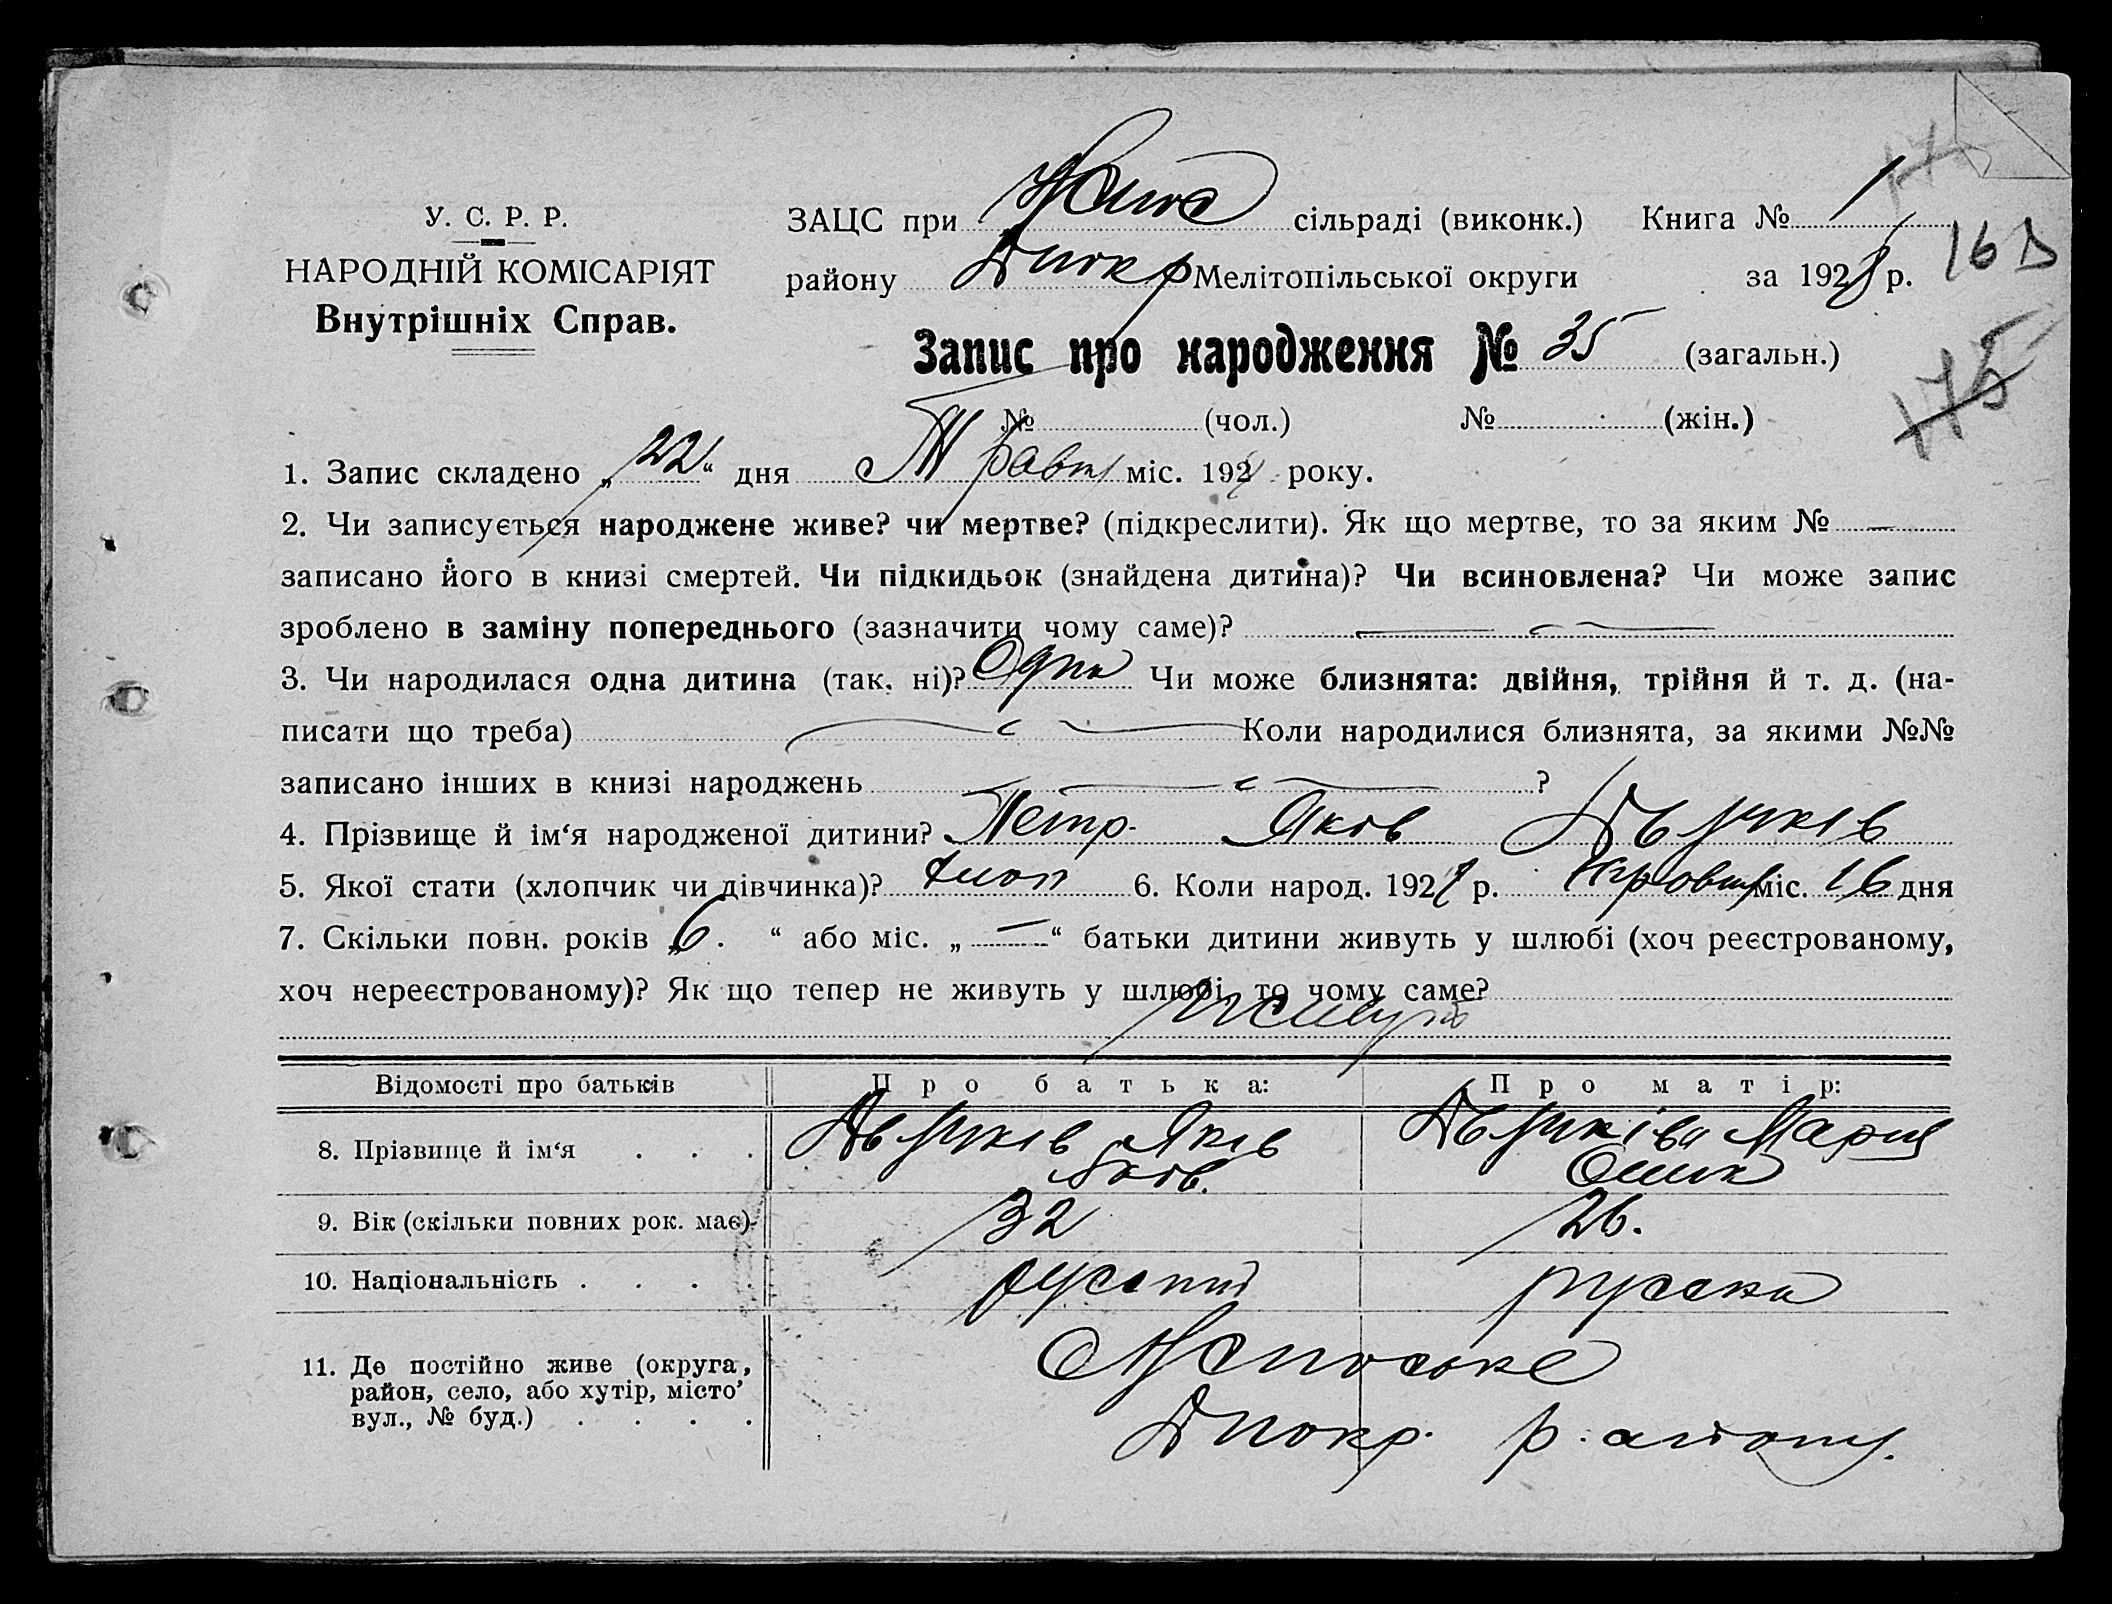 У. С. Р. Р.
НАРОДНІЙ КОМІСАРІЯТ
Внутрішніх Справ.
ЗАЦС при сільраді (виконк.) Книга № 1
району Мелітопільської округи за 192 р.
16
Запис про народження № 35 (загальн.)
175
№ (чол.) № (жін.)
1. Запис складено „22“ дня Травн міс. 192 року.
2. Чи записується народжене живе? чи мертве? (підкреслити). Як що мертве, то за яким № —
записано його в книзі смертей. Чи підкидьок (знайдена дитина)? Чи всиновлена? Чи може запис
зроблено в заміну попереднього (зазначити чому саме)?
3. Чи народилася одна дитина (так, ні)? Одна Чи може близнята: двійня, трійня й т. д. (на-
писати що треба) Коли народилися близнята, за якими №№
записано інших в книзі народжень ?
4. Прізвище й ім‘я народженої дитини? Петр. Яков
5. Якої стати (хлопчик чи дівчинка)? хлоп 6. Коли народ. 192 р. міс. 16 дня
7. Скільки повн. років „6. “ або міс. „—“ батьки дитини живуть у шлюбі (хоч реєстрованому,
хоч нереєстрованому)? Як що тепер не живуть у шлюбі, то чому саме?
живуть
Відомості про батьків Про батька: Про матір:
8. Прізвище й ім‘я . . . Яків Мария
Яков.
9. Вік (скільки повних рок. має). 32 26.
10. Національність . . . . руский руска
11. Де постійно живе (округа,
район, село, або хутір, місто,
вул., № буд.) . . . .
р. айону.